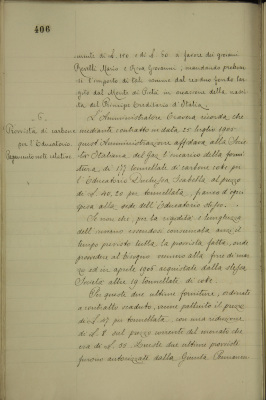 406
mente di L. 110 e di L. 50 a favore dei giovani
Revelli Mario e Rind Giovanni, mandando prelevar
si l'importo di tali somme dal residuo fondo lar
gito dal Monte di Pietà in occasione della nascita
del Principe Ereditario d'Italia.
6.
Provvista di carbone
per l'Educatorio.
Pagamento nota relativa
L'Amministratore Craveri ricorda, che
mediante contratto in data 25 luglio 1905
quest'Amministrazione affidava alla Socie
tà Italiana del Gaz l'incarico della forni
tura di 177 tonnellate di carbone coke per
l'Educatorio Duchessa Isabella al prezzo
di L. 40,20 per tonnellata, franco d'ogni
spesa alla sede dell'Educatorio stesso.
Se non che, per la rigidità e lunghezza
dell'inverno essendosi consumata anzi
tempo previsto tutta la provvista fatta, onde
provvedere al bisogno vennero alla fine di mar
zo ed in aprile 1906 acquistate dalla stessa
Società altre 19 tonnellate di coke.
Per queste due ultime forniture, ordinate
a contratto scaduto, venne pattuito il prezzo
di L. 47 per tonnellata, con una riduzione
di L. 8 sul prezzo corrente del mercato che
era di L. 55. Queste due ultime provviste
furono autorizzate dalla Giunta Permanen